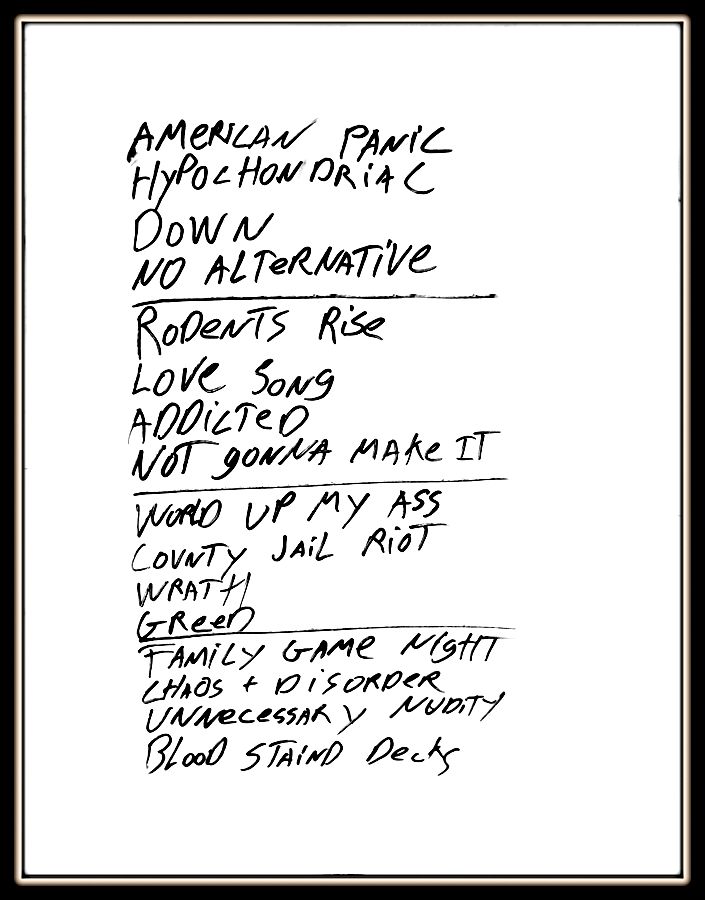 AMERICAN PANIC
HYPOCHONDRIAC
DOWN
NO ALTERNATIVE
RODENTS RISE
LOVE SONG
ADDICTED
NOT GONNA MAKE IT
WORLD UP MY ASS
COUNTY JAIL RIOT
WRATH
GREED
FAMILY GAME NIGHT
CHAOS + DISORDER
UNNECESSARY NUDITY
BLOOD STAIND DECKS